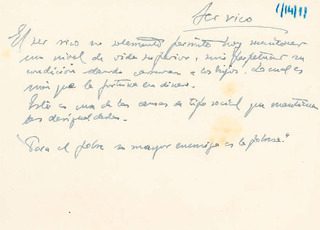 1/14/98
Ser rico
El ser rico no solamente permite hoy mantener
un nivel de vida superior, sino perpetuar su
condición dando carreras a los hijos. Lo cual es
más que la fortuna en dinero.
Esto es una de las causas de tipo social que mantienen
las desigualdades.
"Para el pobre su mayor enemigo es la pobreza."